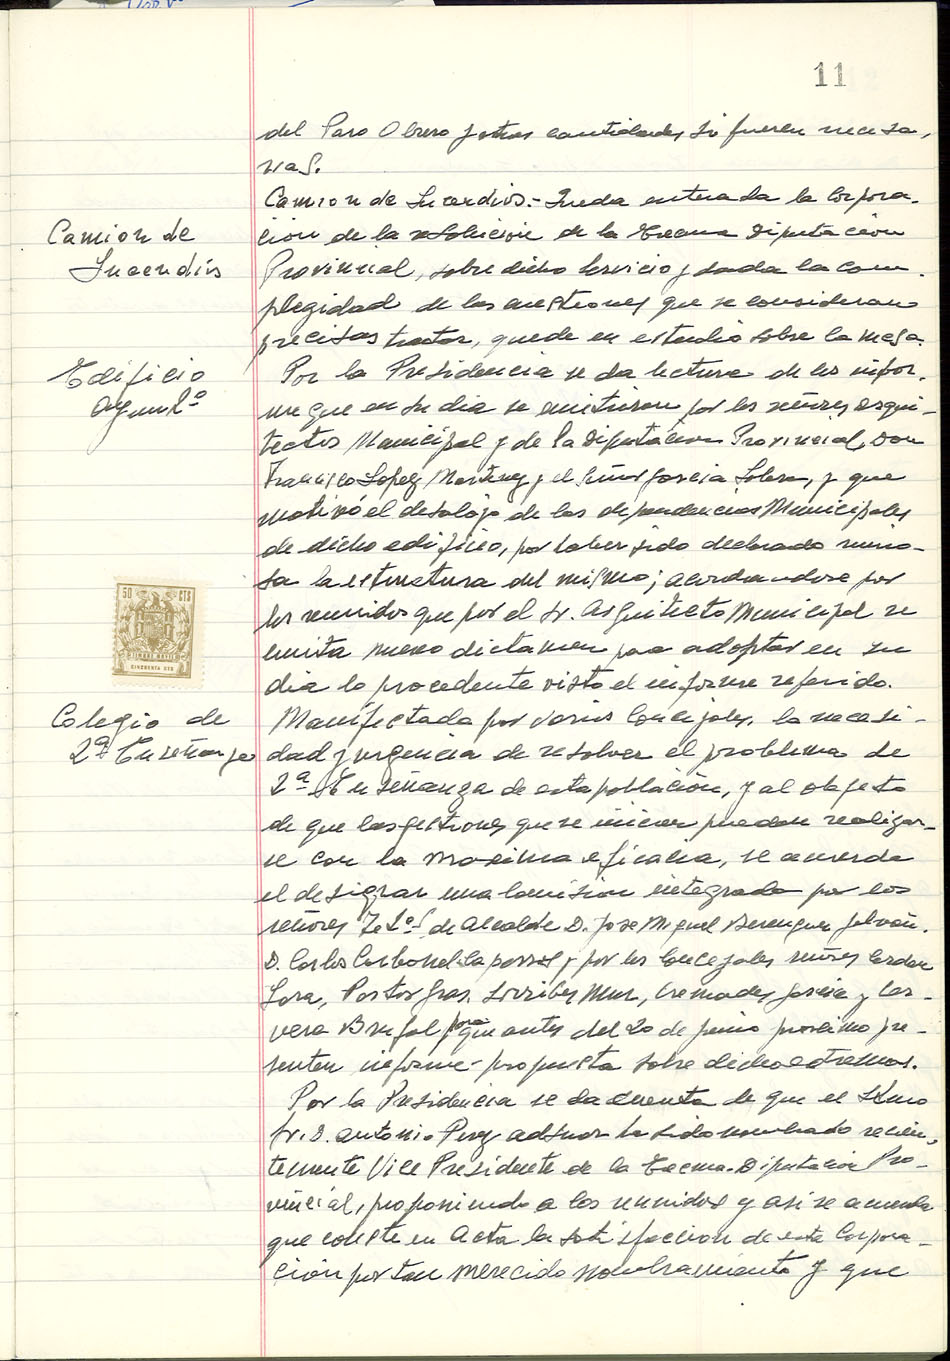 11
del Paro Obrero y otras cantidades si fueren necesa,
rias.
Camion de Incendios
Camion de Incendios.- Queda enterada la Corpora-
cion de la resolucion de la Excma Diputación
Provincial, sobre dicho Servicio y dada la com-
plegidad de las cuestiones que se consideran
precisas tratar, quede en estudio sobre la mesa.
Edificio
Ayunto
Por la Presidencia se da lectura de los infor-
mes que en su dia se emitieron por los señores Arqui-
tectos Municipal y de la Diputación Provincial, Don
Francisco Lopez Martinez y el Señor Garcia Solera, y que
motivó el desalojo de las dependencias Municipales
de dicho edificio, por haber sido declarado ruino-
sa la estructura del mismo; acordandose por
los reunidos que por el Sr. Arquitecto Municipal se
emita nuevo dictamen para adoptar en su
dia lo procedente visto el informe referido.
50 CTS
TIMBRE MOVIL
CINCUENTA CTS
Colegio de
2ª Enseñanza
Manifestada por varios Concejales, la necesi-
dad y urgencia de resolver el problema de
2ª Enseñanza de esta población, y al objeto
de que las gestiones que se inicien puedan realizar-
se con la maxima eficacia, se acuerda
el designar una Comision integrada por los
señores Tes de Alcalde D. Jose Miguel Berenguer Galvañ,
D. Carlos Carbonell y por los Concejales señores
Lora, Pastor Gras, Mur, Cremades Garcia y Cer-
vera Brufal para que antes del 20 de junio proximo pre-
senten informe-propuesta sobre dicho extremos.
Por la Presidencia se da cuenta de que el Ilmo
Sr. D. Antonio Perez Adsuar ha sido nombrado recien,
temente Vice Presidente de la Excma. Diputación Pro-
vincial, proponiendo a los reunidos y asi se acuerda
que conste en Acta la satisfaccion de esta Corpora-
ción por tan merecido nombramiento y que